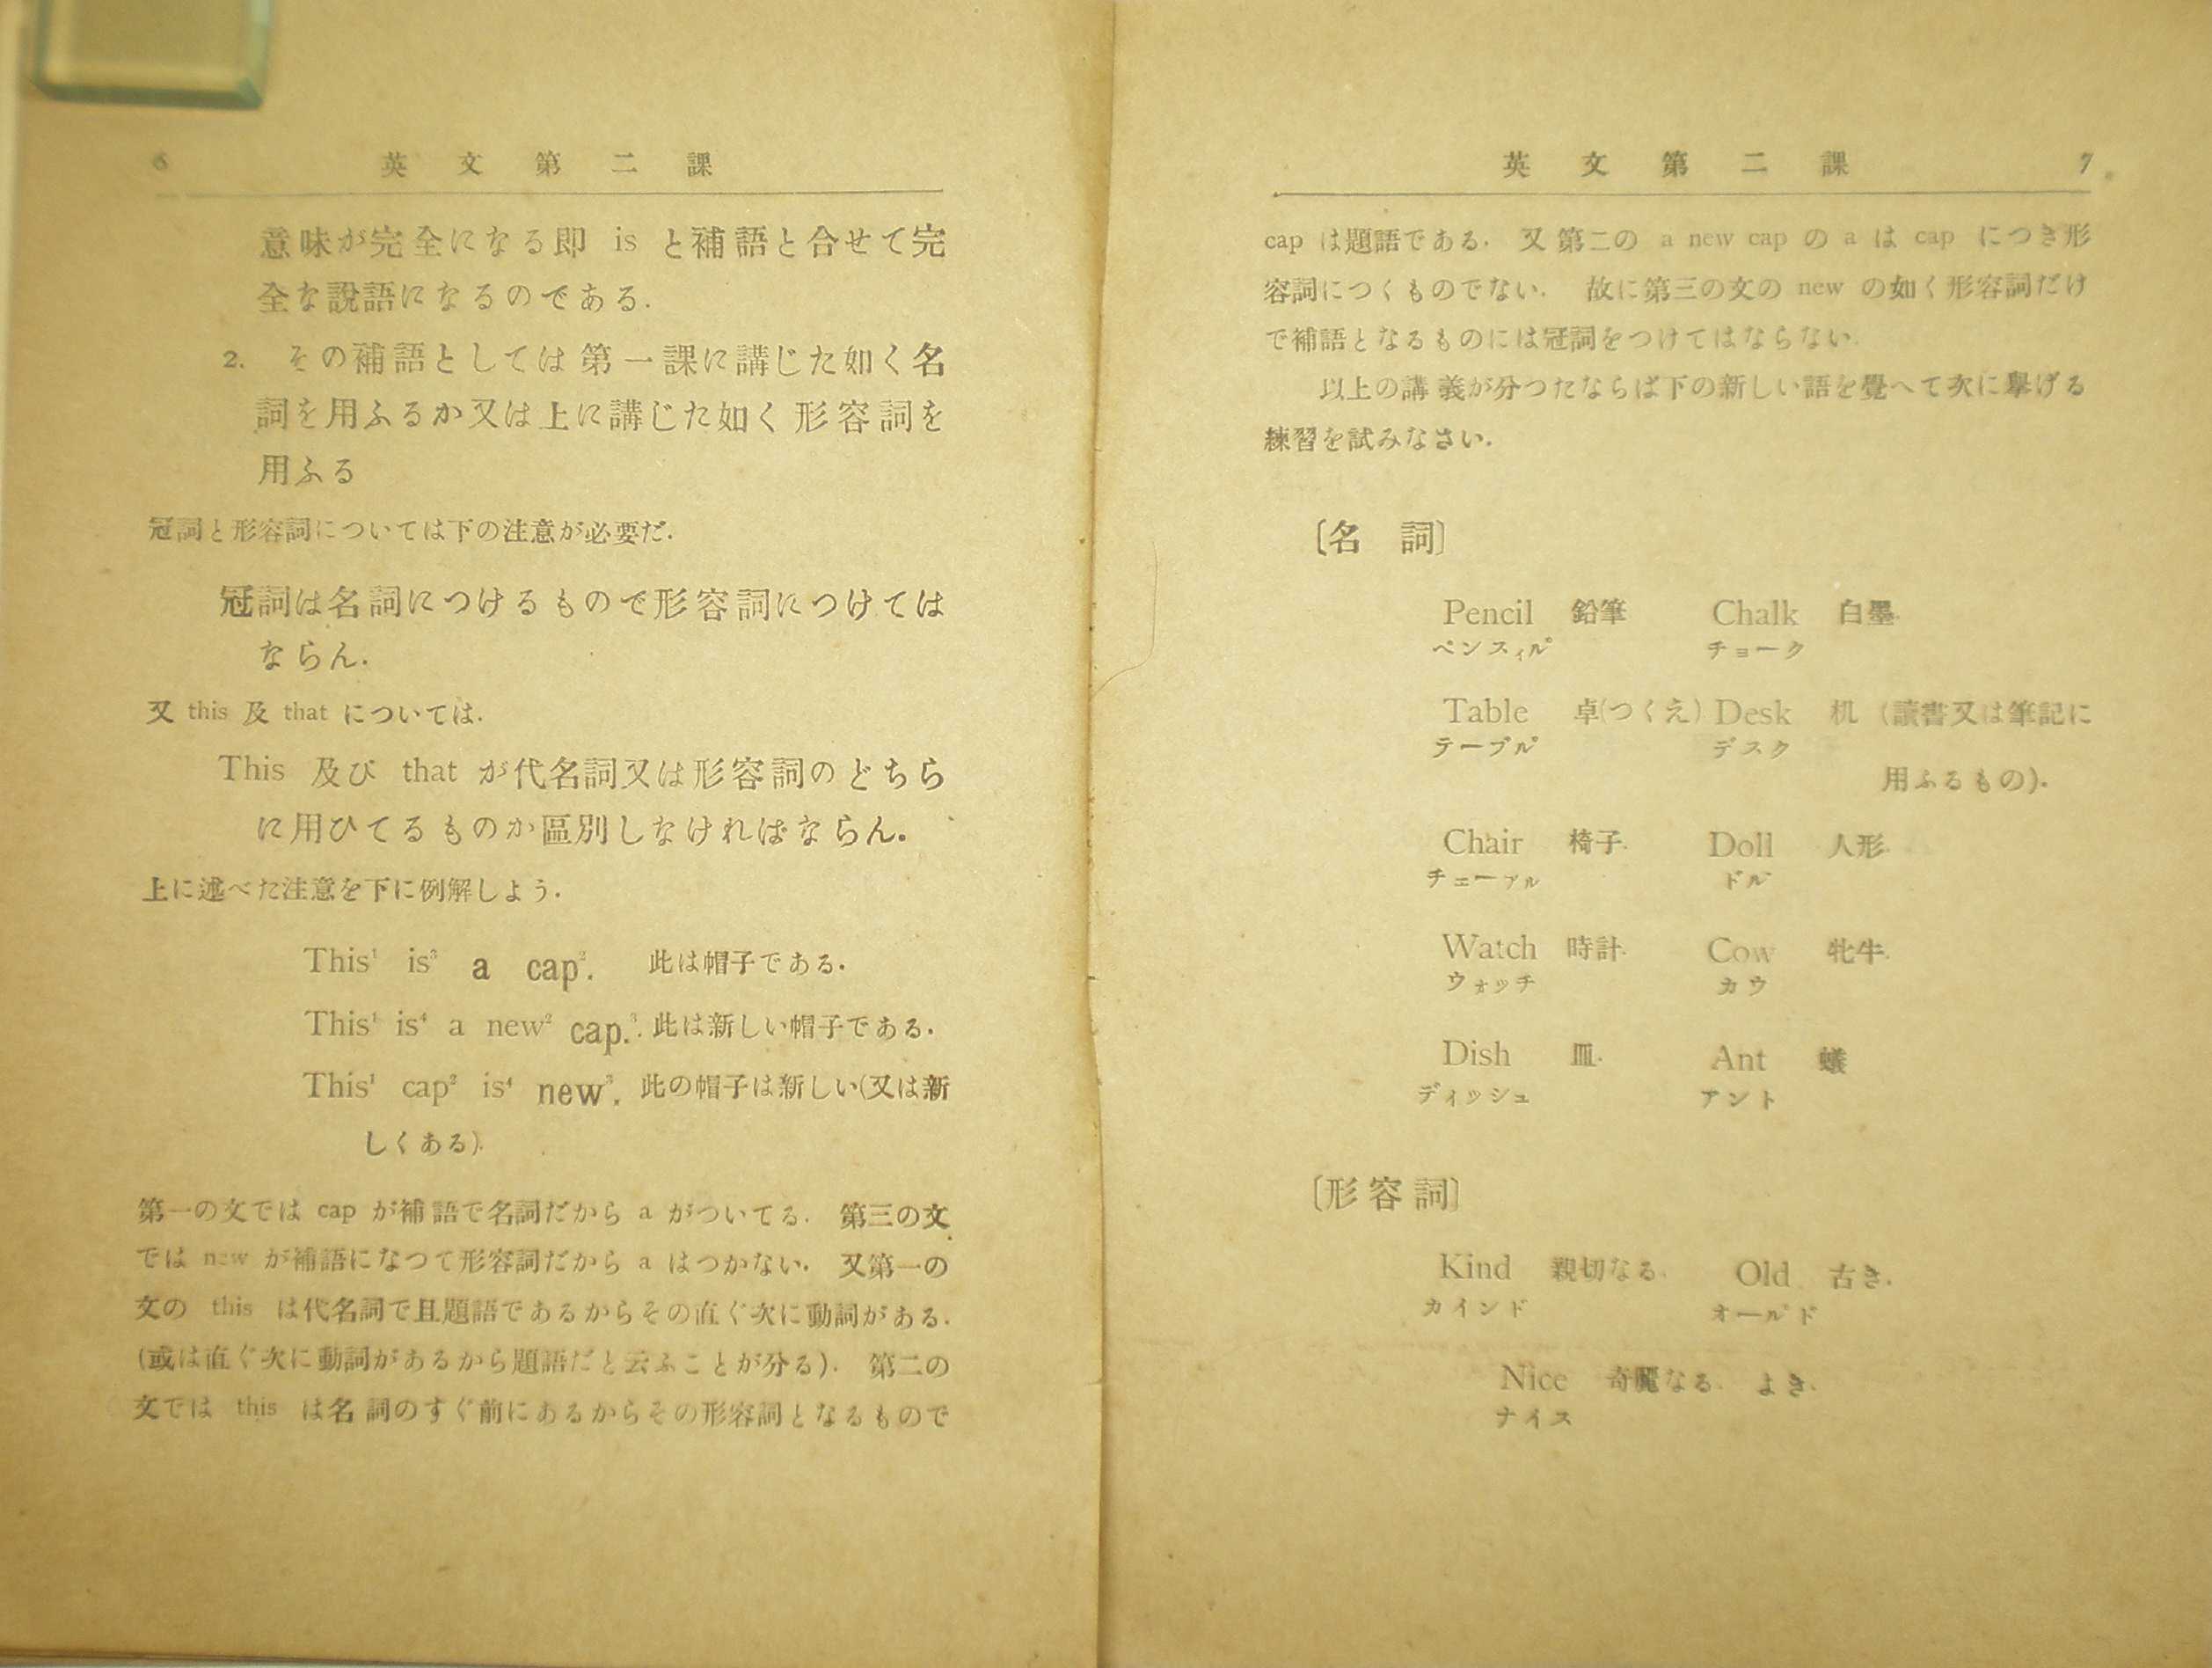 6 英文第二課
意味が完全になる即 is と補語と合せて完
全な說語になるのである.
2. その補語としては第一課に講じた如く名
詞を用ふるか又は上に講じた如く形容詞を
用ふる
冠詞と形容詞については下の注意が必要だ.
冠詞は名詞につけるもので形容詞につけては
ならん.
又 this 及 that については.
This 及び that が代名詞又は形容詞のどちら
に用ひてるものか區別しなければならん.
上に述べた注意を下に例解しよう.
This¹ is³ a cap². 此は帽子である.
This¹ is⁴ a new² cap.³. 此は新しい帽子である.
This¹ cap² is⁴ new³. 此の帽子は新しい(又は新
しくある).
第一の文では cap が補語で名詞だから a がついてる. 第三の文
では new が補語になつて形容詞だから a はつかない. 又第一の
文の this は代名詞で且題語であるからその直ぐ次に動詞がある.
(或は直ぐ次に動詞があるから題語だと云ふことが分る). 第二の
文では this は名詞のすぐ前にあるからその形容詞となるもので
英文第二課 7
cap は題語である. 又第二の a new cap の a は cap につき形
容詞につくものでない. 故に第三の文の new の如く形容詞だけ
で補語となるものには冠詞をつけてはならない.
以上の講義が分つたならば下の新しい語を覺へて次に擧げる
練習を試みなさい.
〔名詞〕
Pencil 鉛筆 Chalk 白墨.
ペンスィル チョーク
Table 卓(つくえ) Desk 机 (讀書又は筆記に
テーブル デスク
用ふるもの).
Chair 椅子. Doll 人形.
チェーアル ドル
Watch 時計. Cow 牝牛.
ウォッチ カウ
Dish 皿. Ant 蟻
ディッシュ アント
〔形容詞〕
Kind 親切なる. Old 古き.
カインド オールド
Nice 奇麗なる. よき.
ナイス